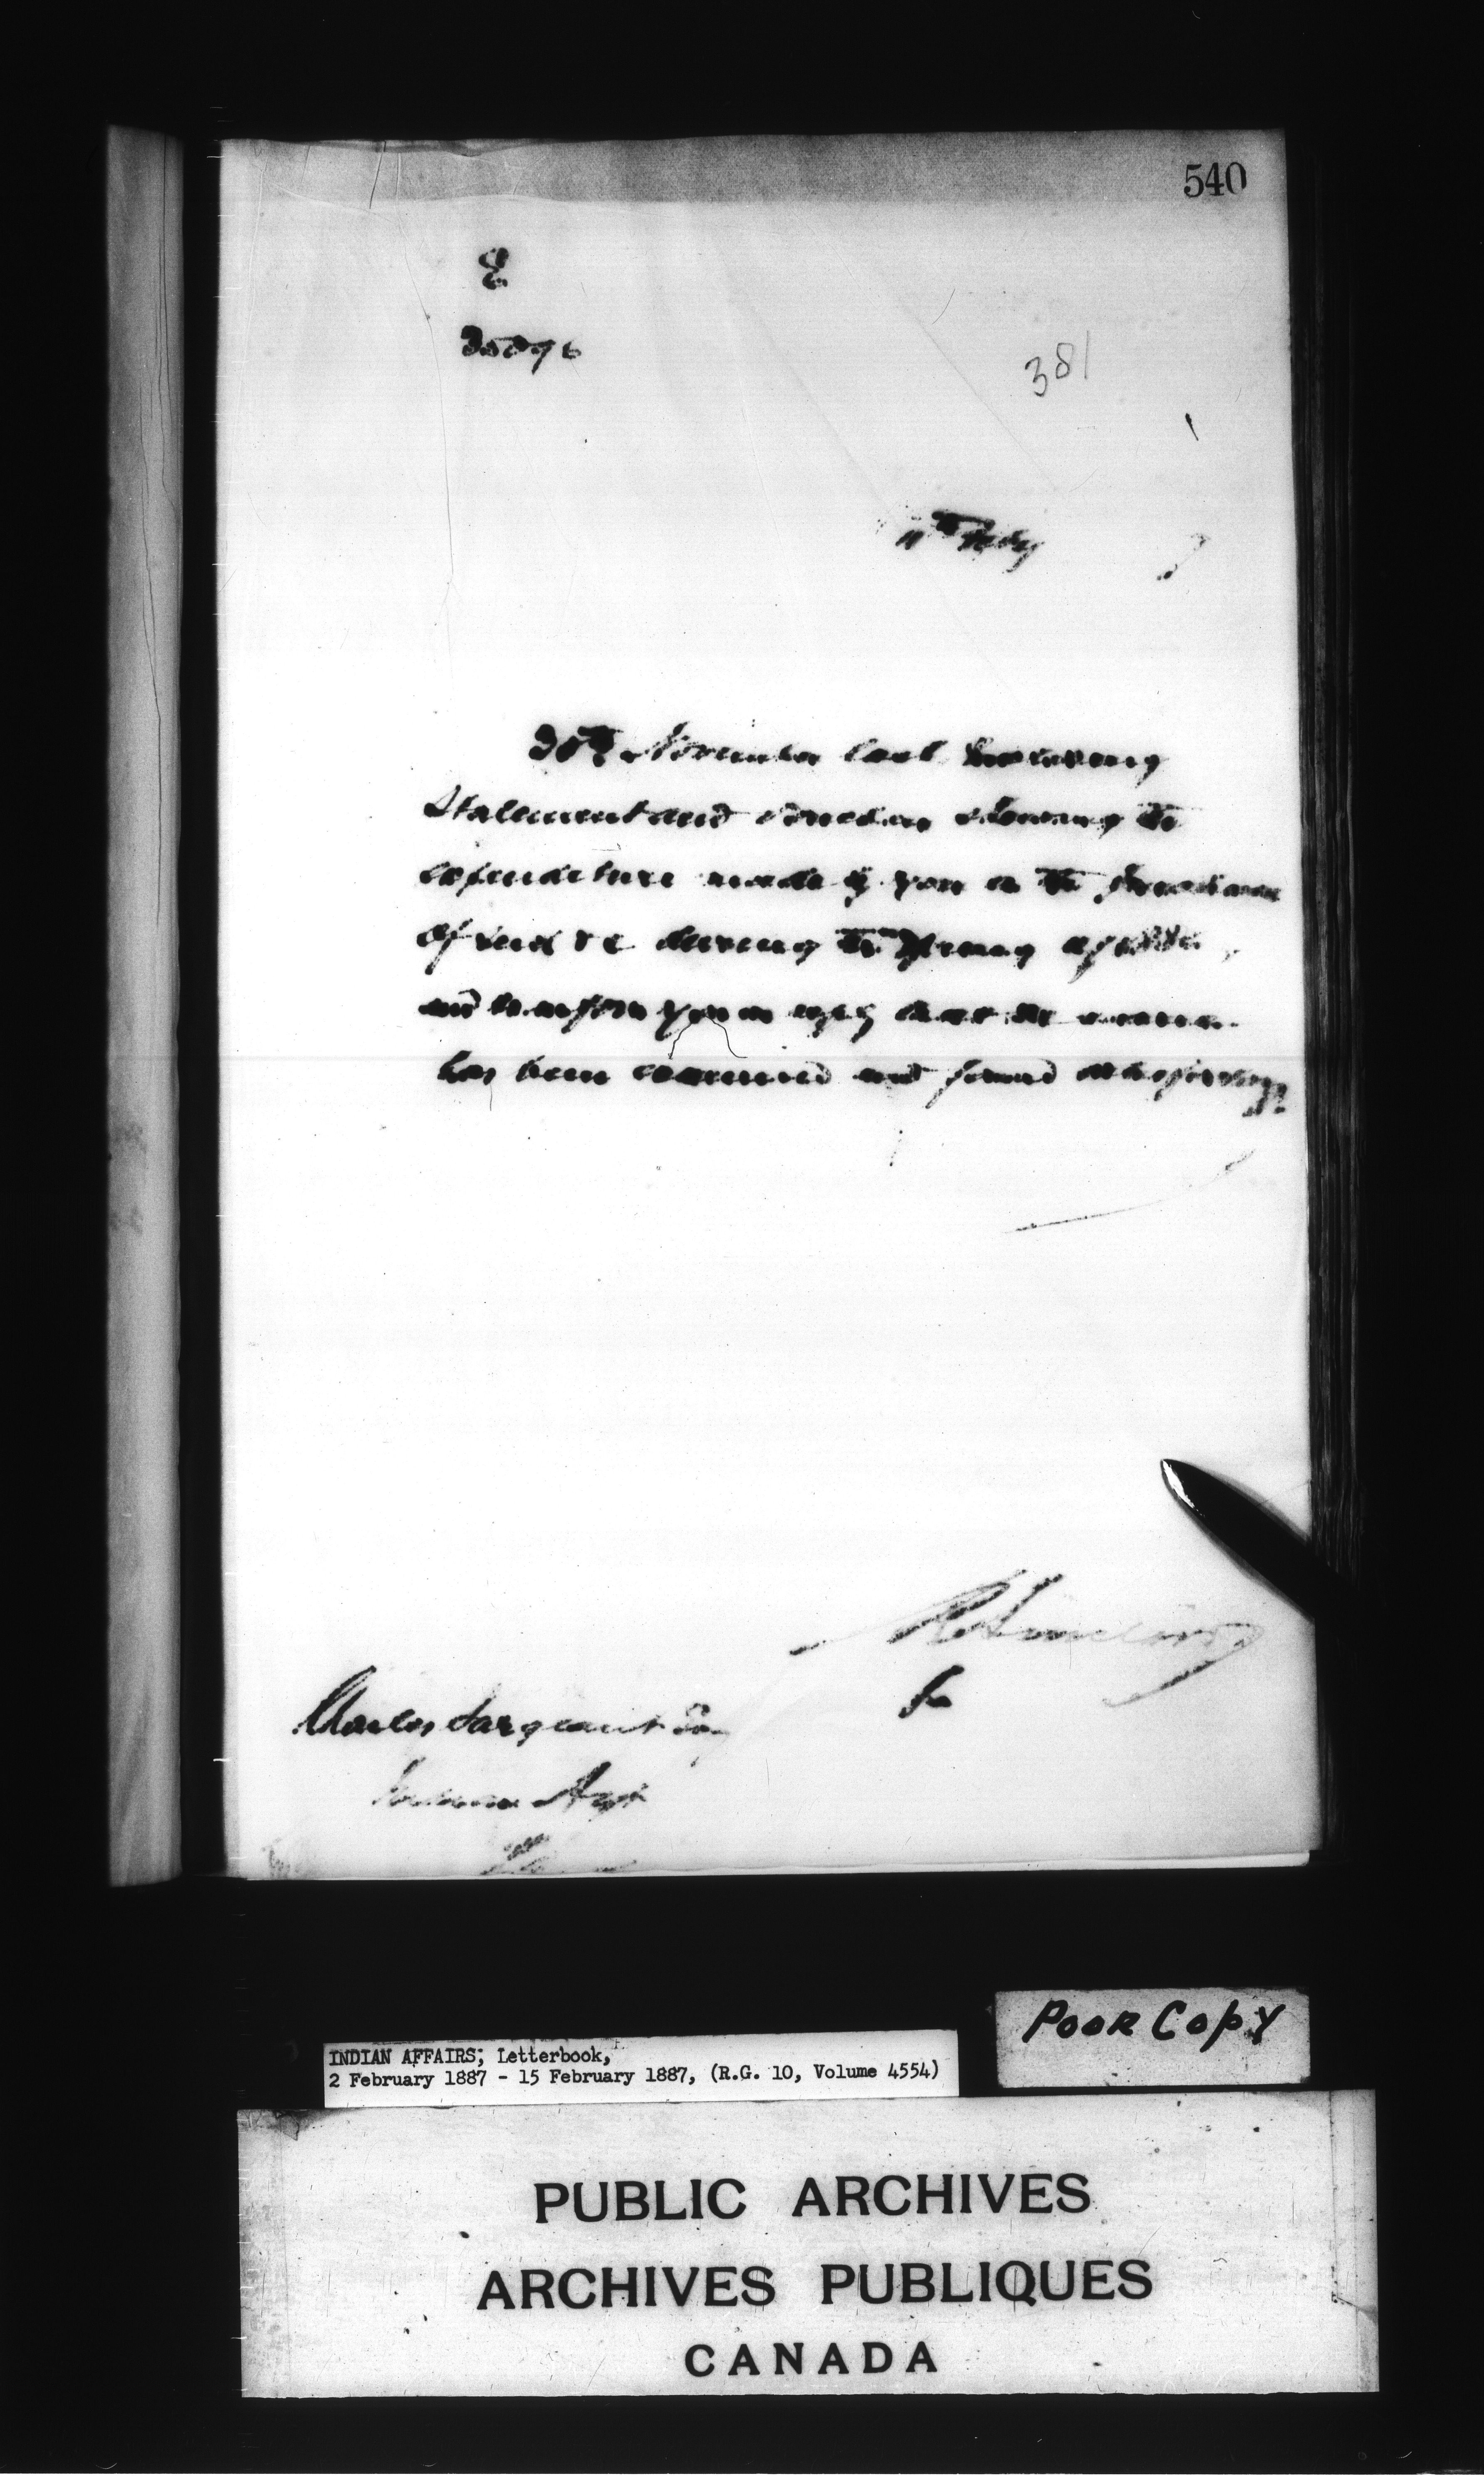 540
E
35096
381
11th Feby 7
30th November last enclosing
Statement and vouchers showing the
expenditure made by you in the purchase
of seed &c during the Spring of 1886,
and to inform you in reply that the
has been examined and found satisfactory
R Sinclair
for
Charles Sargeant Esq
Indian Agt
INDIAN AFFAIRS, Letterbook,
2 February 1887 - 15 February 1887, (R.G. 10, Volume 4554)
POOR COPY
PUBLIC ARCHIVES
ARCHIVES PUBLIQUES
CANADA